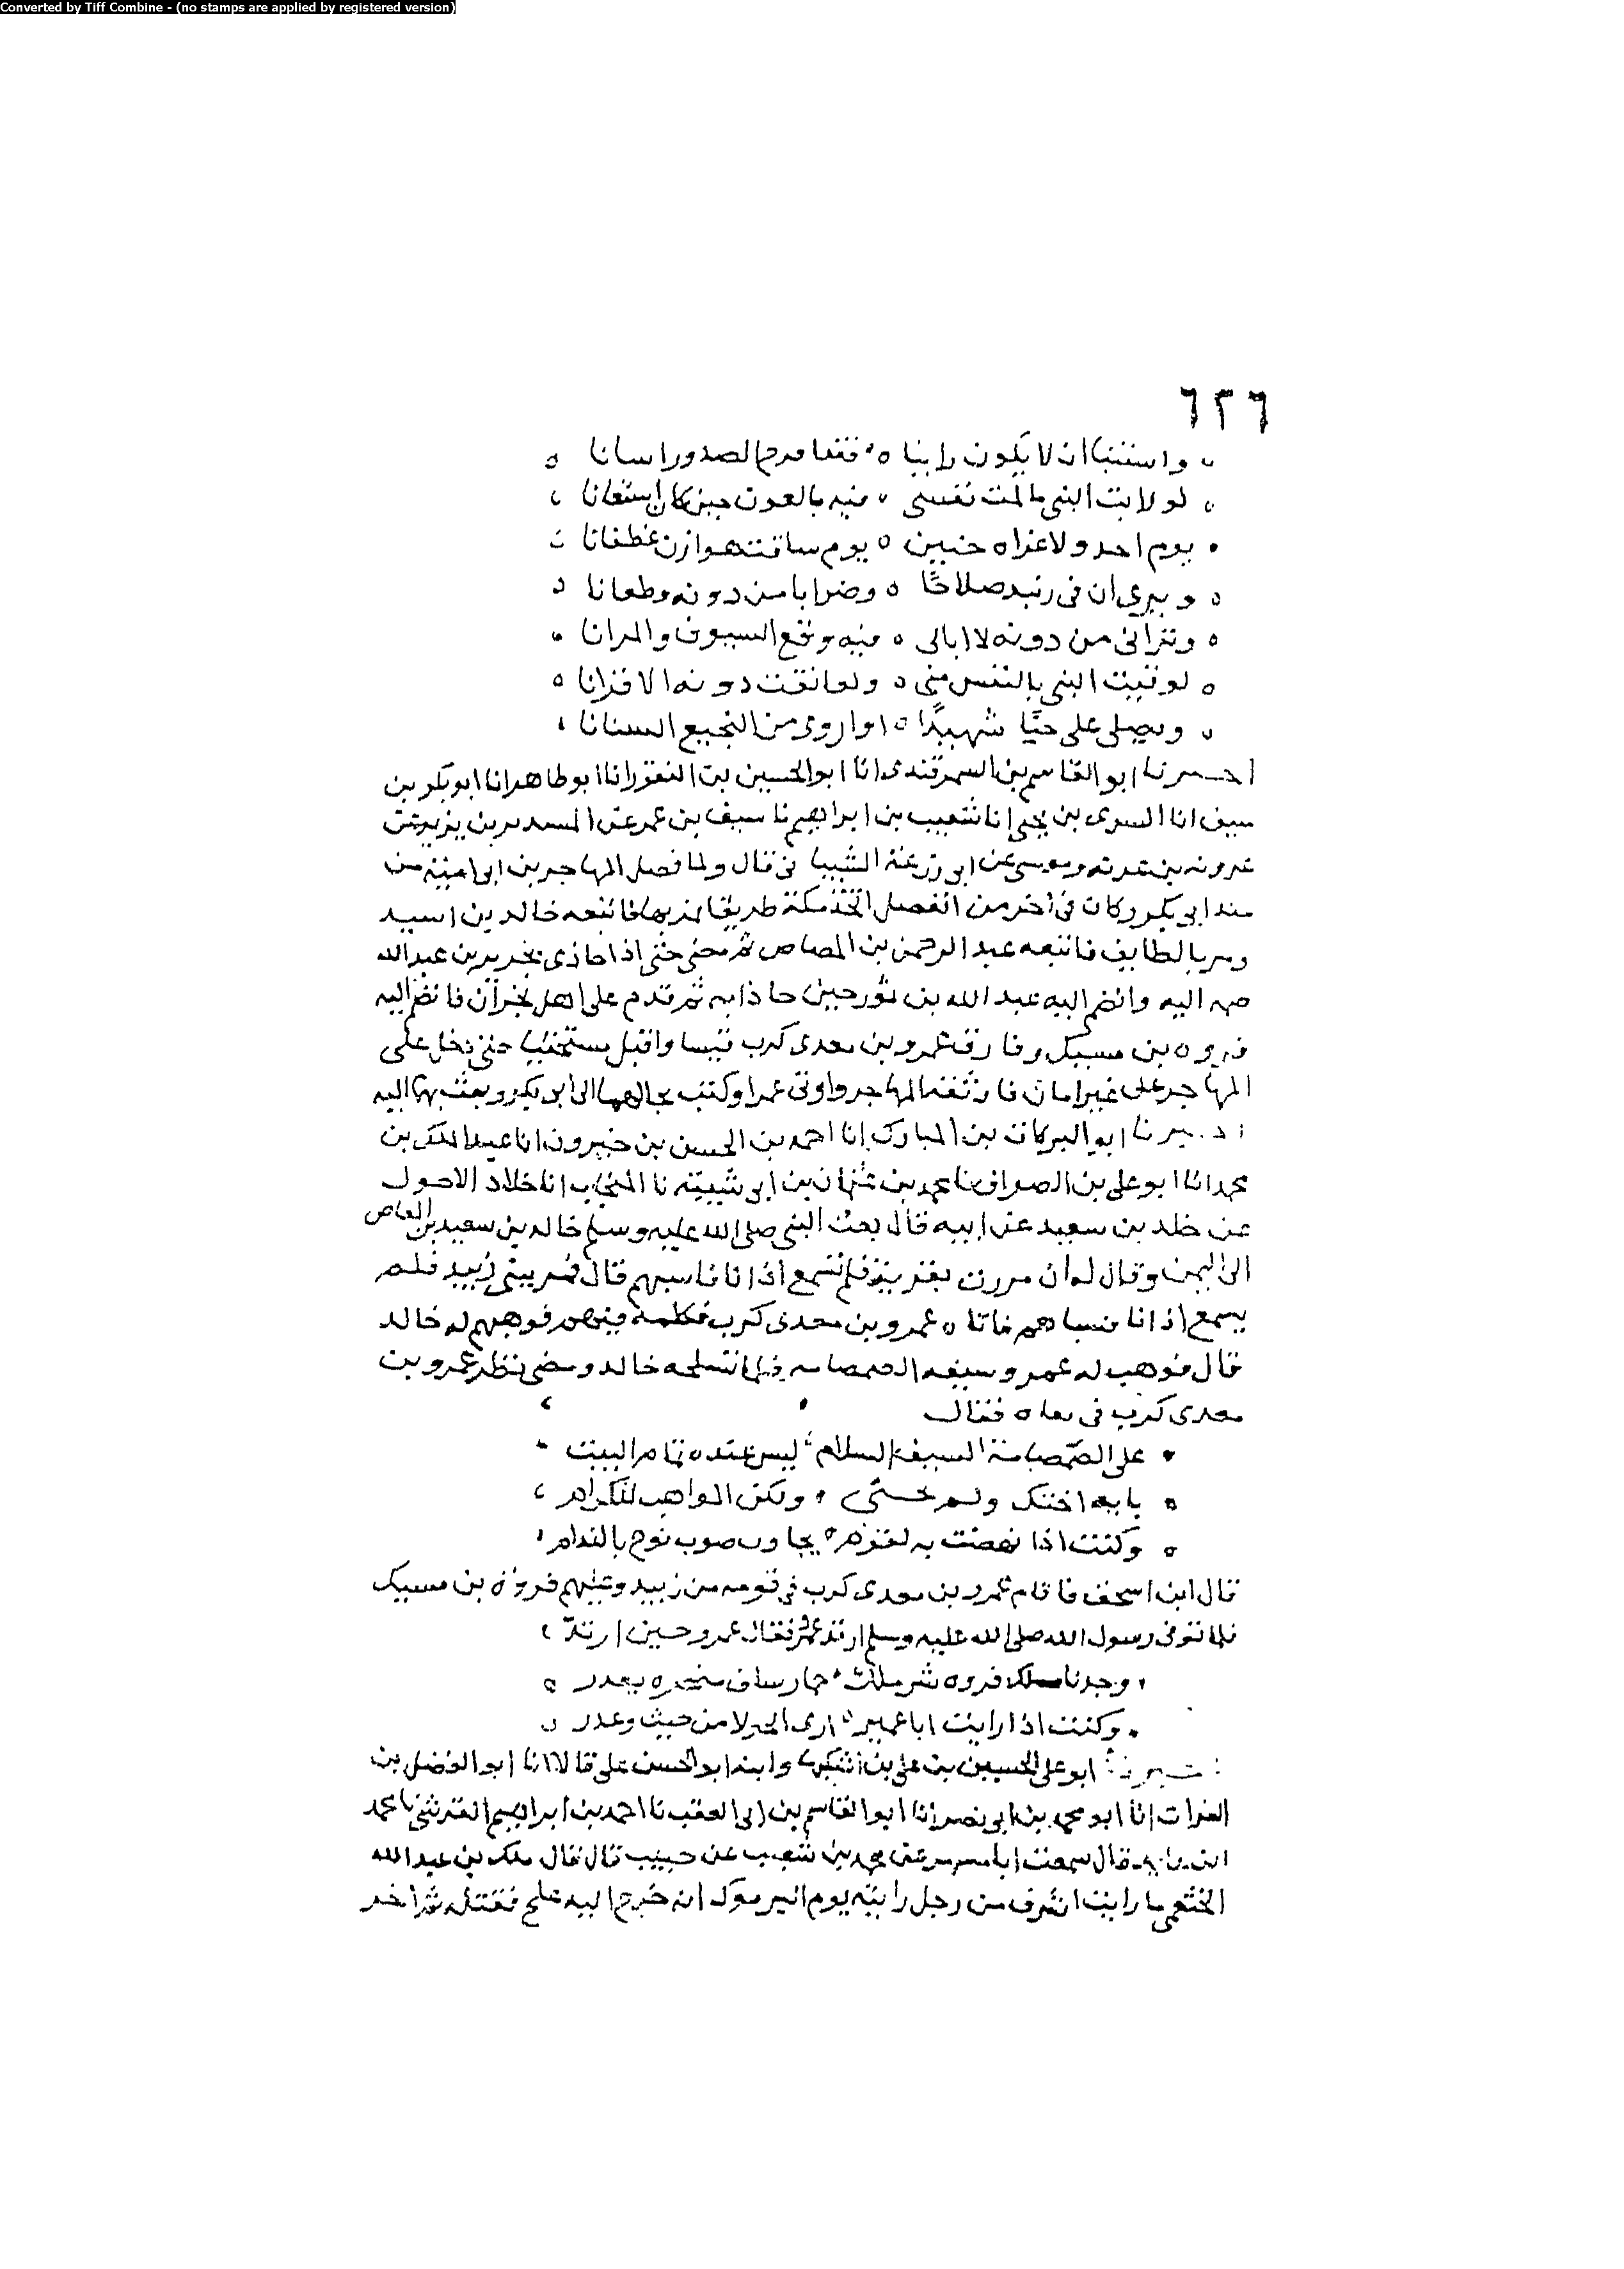 Converted by Tiff Combine - (no stamps are applied by registered version)
٦٢٦
واستثبا ان لا يكون رابيا فقدامرح الصدور اسانا
لو لابت البنى ما لمت نفسى منيه بالعون حين كان استعانا
يوم احد ولا غزاه حنين يوم ساقت هوازن غطفانا
و يرى ان فى زبيد صلاحًا وضرابا من دونه وطعانا
وترانى من دونه لا ابالى فيه وقع السيوف والمرانا
لوقيت البنى بالنفس منى ولعانقت دونه الاقرانا
ويصلى على حيًا شهيدًا اوا روى من النجيع السنانا
اخبرنا ابو القاسم بن السمرقندى انا ابو الحسين بن النقور انا ابو طاهر انا ابو بكر بن
سيف انا السرى بن يحيى انا شعيب بن ابراهيم نا سيف بن عمر عن المستنير بن يزيد عن
عروه بن غزيه وموسى عن ابى زرعة الشيبا نى قال ولما فصل المهاجر بن ابى اميه من
عند ابى بكر وكان فى اخر من انفصل اتخذ مكة طريقا فمر بها فاتبعه خالد بن اسيد
ومر بالطايف فاتبعه عبد الرحمن بن العاص ثم مضى حتى اذا حاذى بجرير بن عبد الله
ضمه اليه وانضم اليه عبد الله بن ثور حين حاذا به ثم قدم على اهل نجران فانضم اليه
فروه بن مسيك وفارق عمرو بن معدى كرب قيسا واقبل مستخفيا حتى دخل على
المهاجر على غير امان فاوثقه المهاجر واوثق عمرا وكتب بحالهما الى ابى بكر وبعث بهما اليه
اخبرنا ابو البركات بن المبارك انا احمد بن الحسن بن خيرون انا عبد الملك بن
محمد انا ابو على بن الصواف نا محمد بن عثمان بن ابى شيبة نا المنجاب انا خلاد الاحول
عن خلد بن سعيد عن ابيه قال بعث البنى صلى الله عليه وسلم خالد بن سعيد بن العاص
الى اليمن وقال له ان مررت بقرية فلم تسمع اذانا فاسبهم قال فمر ببنى زبيد فلم
يسمع اذانا فسباهم فاتاه عمرو بن معدى كرب فكلمه فيهم فوهبهم له خالد
قال فوهب له عمرو سيفه الصمصامه فتسلحه خالد ومضى نظر عمرو بن
معدى كرب فى فقال
على الصمصامة السيف السلام ليس عنده تمام البيت
اخنك ولم تخنى ولكن المواهب للكرام
وكنت اذا نهضت به لقوم يجاوب صوب نوح بالندام
قال ابن اسحق فاقام عمرو بن معدى كرب فى قومه من زبيد وعليهم فروة بن مسيك
فلما توفى رسول الله صلى الله عليه وسلم ارتد عمرو فقال عمرو حين ارتدّ
وجدنا ملك فروه شر ملك حمار ساف منخره بعدر
وكنت اذا رايت ابا عمير ارى الحولا من خبث وغدر
ابو على الحسين بن على بن اشكيب وابنه ابو الحسن على قالا انا ابو الفضل بن
الفرات انا ابو محمد بن ابى نصر انا ابو القاسم بن ابى العقب نا احمد بن ابراهيم القرشى نا محمد
ابن عايد قال سمعت ابا مسهر عن محمد بن شعيب عن حبيب قال قال ملك بن عبد الله
الخثعمى ما رايت اشرف من رجل رايته يوم اليرموك انه خرج اليه علج فقتله ثم اخر